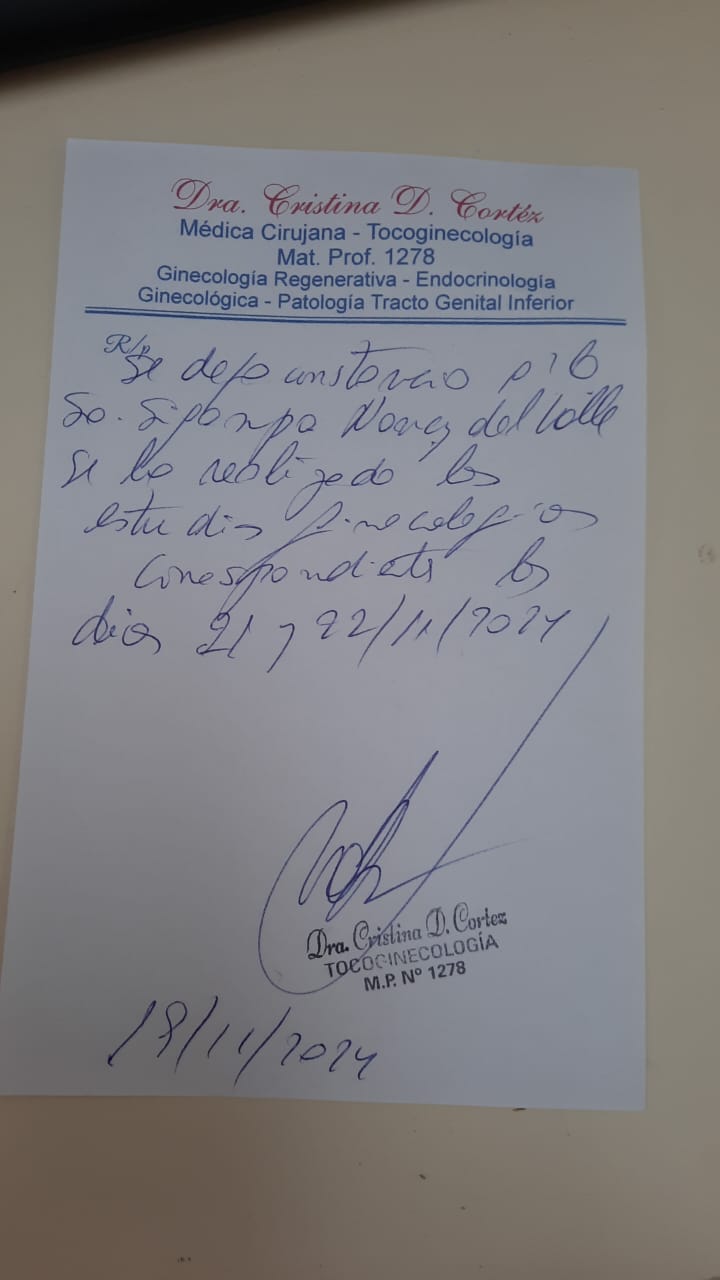 Dra. Cristina D. Cortéz
Médica Cirujana - Tocoginecología
Mat. Prof. 1278
Ginecología Regenerativa - Endocrinología
Ginecológica - Patología Tracto Genital Inferior
R/p
Se deja constancia
Sra. del Valle
se ha realizado los
estudios ginecologicos
correspondiente los
dias 21 y 22/11/2024
Dra. Cristina D. Cortez
TOCOGINECOLOGÍA
M.P. Nº 1278
19/11/2024